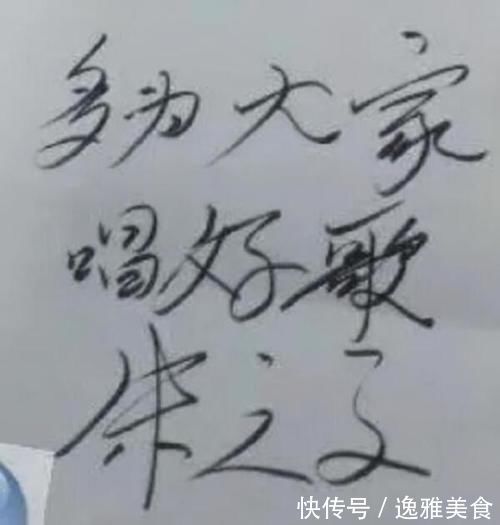 多为大家
唱好歌
朱之文
快传号／逸雅美食